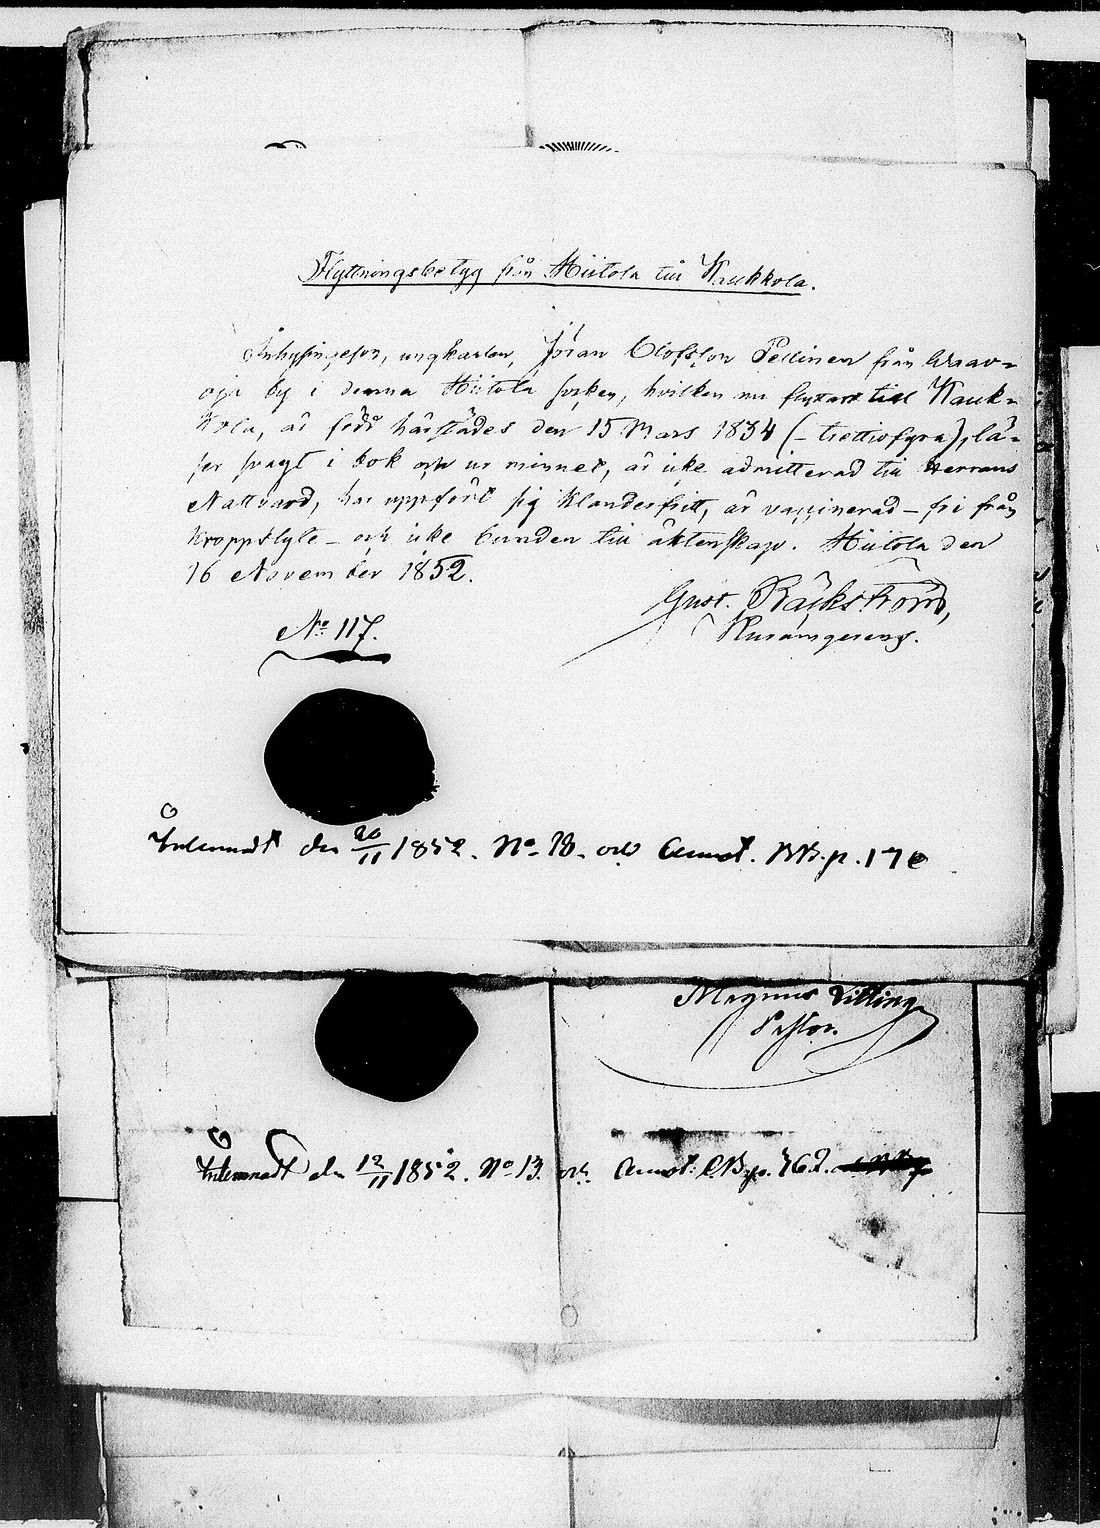 Flyttningsbetyg från Hiitola till Kaukkola.
Inhysingeson, ungkarlen, Jöran Olofsson Pellinen från
by i denna Hiitola socken, hvilken nu flyttar till Kauk-
kola, är född härstädes den 15 Mars 1834 (- trettiofyra), lä-
ser svagt i bok och ur minnet, är icke admitterad till Herrans
Nattvard, har uppfört sig klanderfritt, är vaccinerad - fri från
kroppslyte - och icke bunden till äktenskap. Hiitola den
16 November 1852.
Gust. Räckström,
No 117.
Inlemnadt den 20/11 1852. No 18. och Annot. p. 170
Magnus
Pastor.
Inlemnadt den 12/11 1852. No 13. och Annot. p. 762.